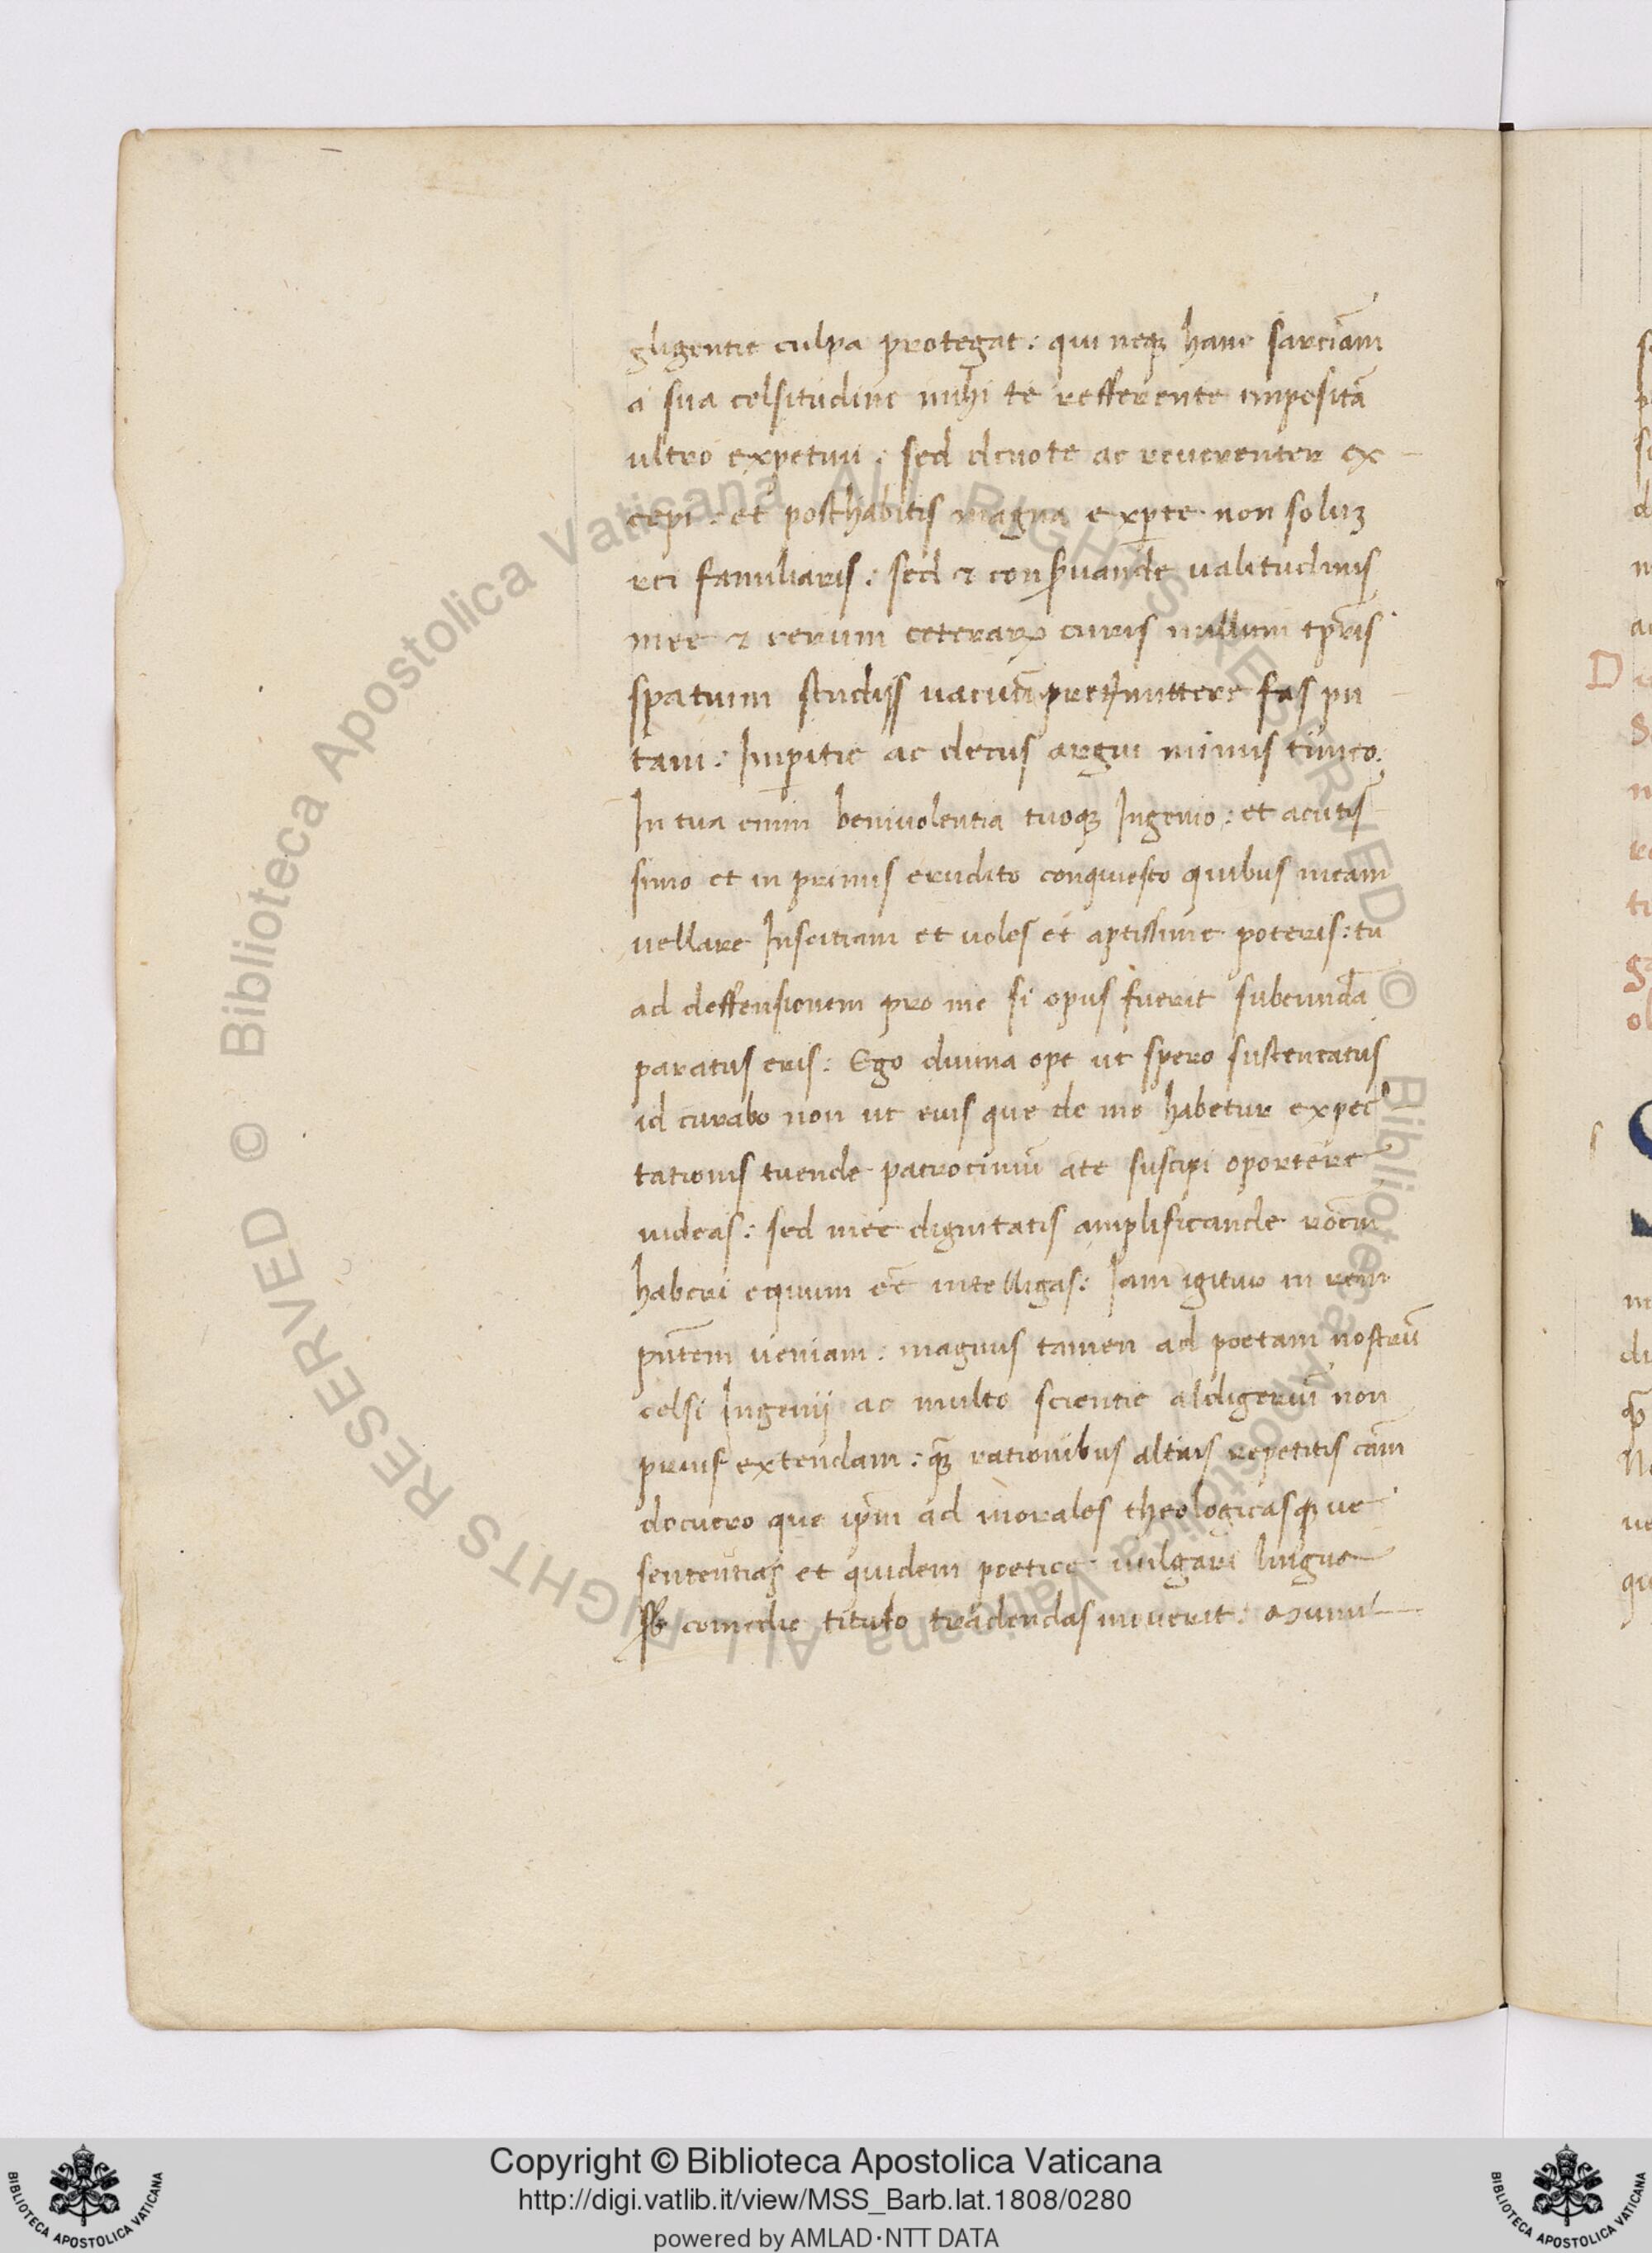 gligentie culpa protegat: qui neqꝫ hanc sarcinā
a sua celsitudine mihi te refferente impositā
ultro expetiui: sed deuote ac reuerenter ex
cepi: et posthabitis magna ex ꝑte non soluꝫ
rei familiaris: sed ⁊ conẜuande ualitudinis
mee ⁊ rerum ceteraꝝ curis nullum tp̄ris
spatium studijs uacuū pretermittere fas pu
taui: Imꝑitie ac decus argui minus timeo.
In tua enim beniuolentia tuoqꝫ Ingenio: et acutis
simo et in primis erudito conquiesco quibus meam
uellare Inscitiam et uoles et aptissime poteris: tu
ad deffensionem pro me si opus fuerit subeundā
paratus eris: Ego diuina ope ut spero sustentatus
id curabo non ut eius que de me habetur expec
tationis tuende patrociniū a te suscipi oportere
uideas: sed mee dignitatis amplificande rōem
haberi equum eē intelligas: Iam igitur in rem
pn̄tem ueniam: magnus tamen ad poetam nostrū
celsi Ingenij ac multe scientie aldigeriū non
prius extendam: qꝫ rationibus altius repetitis cām
docuero que ip̄m ad morales theologicasqꝫ ue
sententias et quidem poetice uulgari lingua
sb comedie titulo tradendas mouerit:
Copyright © Biblioteca Apostolica Vaticana
http://digi.vatlib.it/view/MSS_Barb.lat.1808/0280
powered by AMLAD·NTT DATA